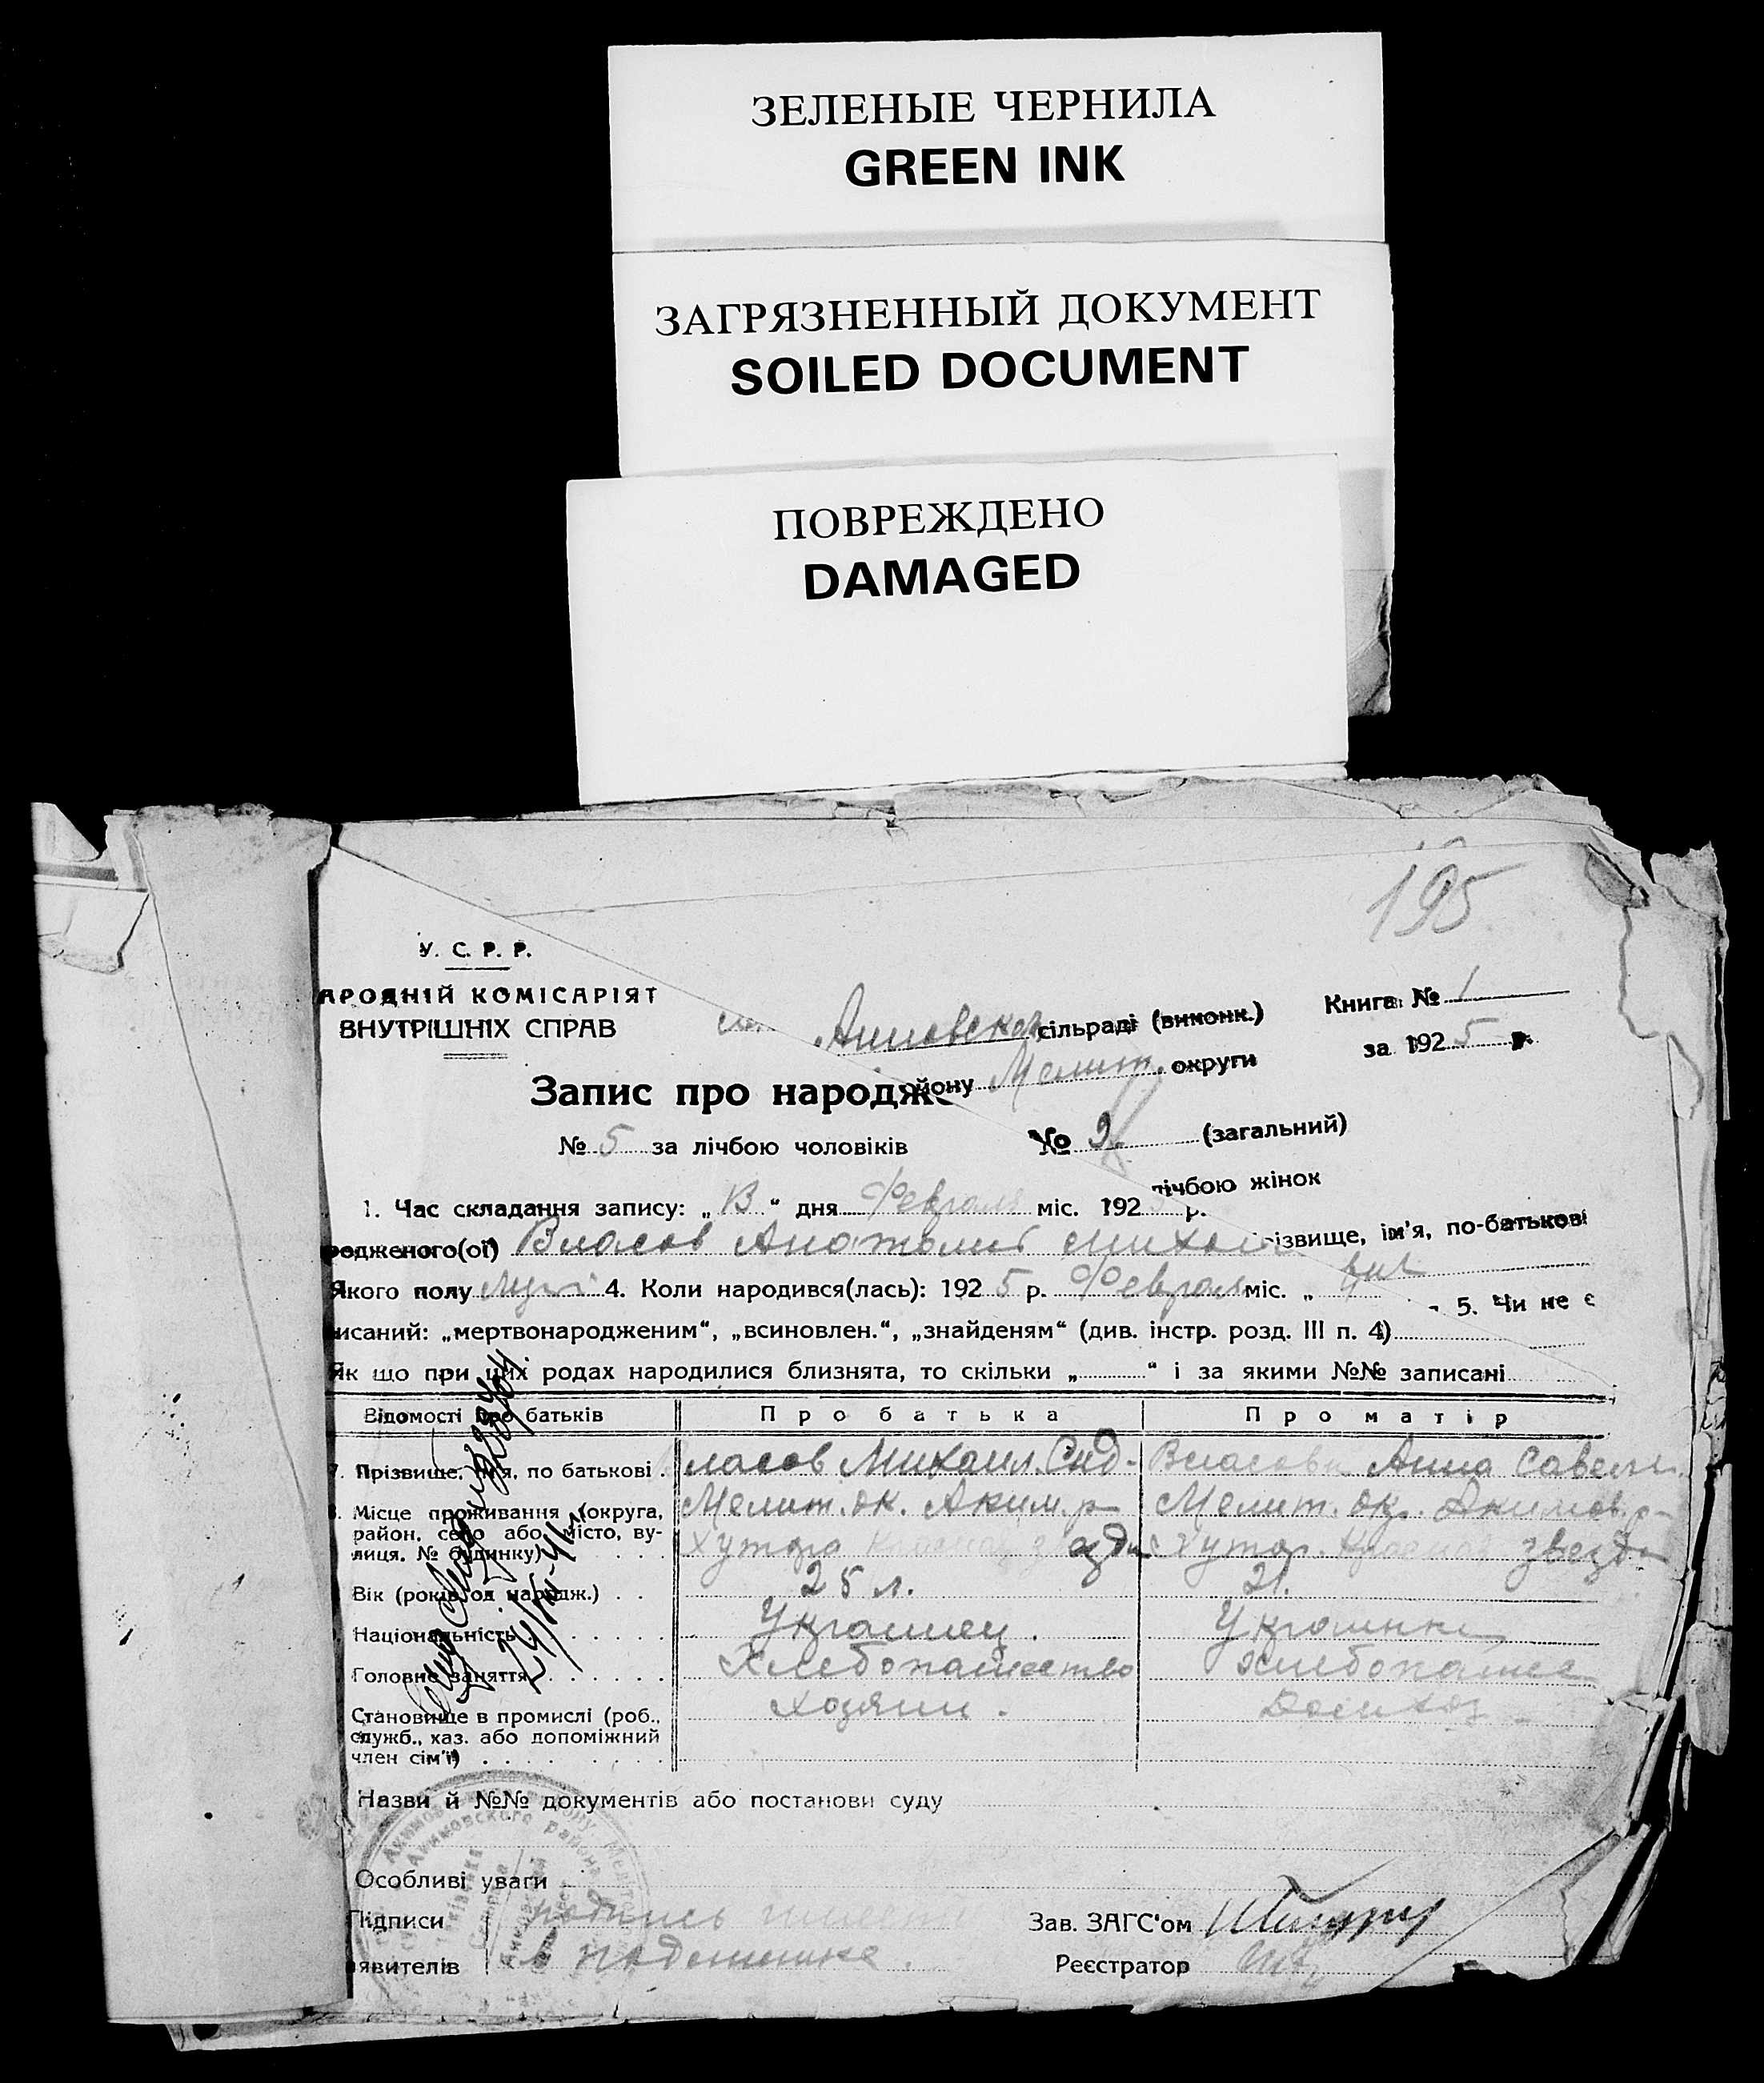 ЗЕЛЕНЫЕ ЧЕРНИЛА
GREEN INK
ЗАГРЯЗНЕННЫЙ ДОКУМЕНТ
SOILED DOCUMENT
ПОВРЕЖДЕНО
DAMAGED
195
У. С. Р. Р.
АРОДНІЙ КОМІСАРІЯТ
ВНУТРІШНІХ СПРАВ
сільраді (виконк.)
Книга № 1
йону Мелит. округи
за 1925 р.
Запис про народже
№ 5 за лічбою чоловіків
№ 9 (загальний)
лічбою жінок
1. Час складання запису: „ 13 “ дня Февраля міс. 192 р.
різвище, ім'я, по-батькові
родженого(ої) Власов Анатолий Михаи
Якого полу Муж 4. Коли народився(лась): 1925 р. Февраля міс. „ 4
5. Чи не є
исаний: „мертвонародженим“, „всиновлен.“, „знайденям“ (див. інстр. розд. III п. 4)
Як що при цих родах народилися близнята, то скільки „ “ і за якими №№ записані
Відомості про батьків Про батька Про матір
7. Прізвище, ім'я, по батькові Власов Михаил Сид- Власова Анна Савел
8. Місце проживання (округа, Мелит. ок. Аким. р- Мелит. ок. Акимов. р-
район, село або місто, ву-
лиця, № будинку) Хутор Хутор. Красная звезда
Вік (років од народж.) 25 л. 21.
Національність Украинец. Украинка
Головне заняття Хлебопашество хлебопашес
Становище в промислі (роб., Хозяин. Дом хоз
служб., хаз. або допоміжний
член сім'ї)
Назви й №№ документів або постанови суду
Особливі уваги
Підписи подпись
Зав. ЗАГС'ом
явителів в подлиннике.
Реєстратор